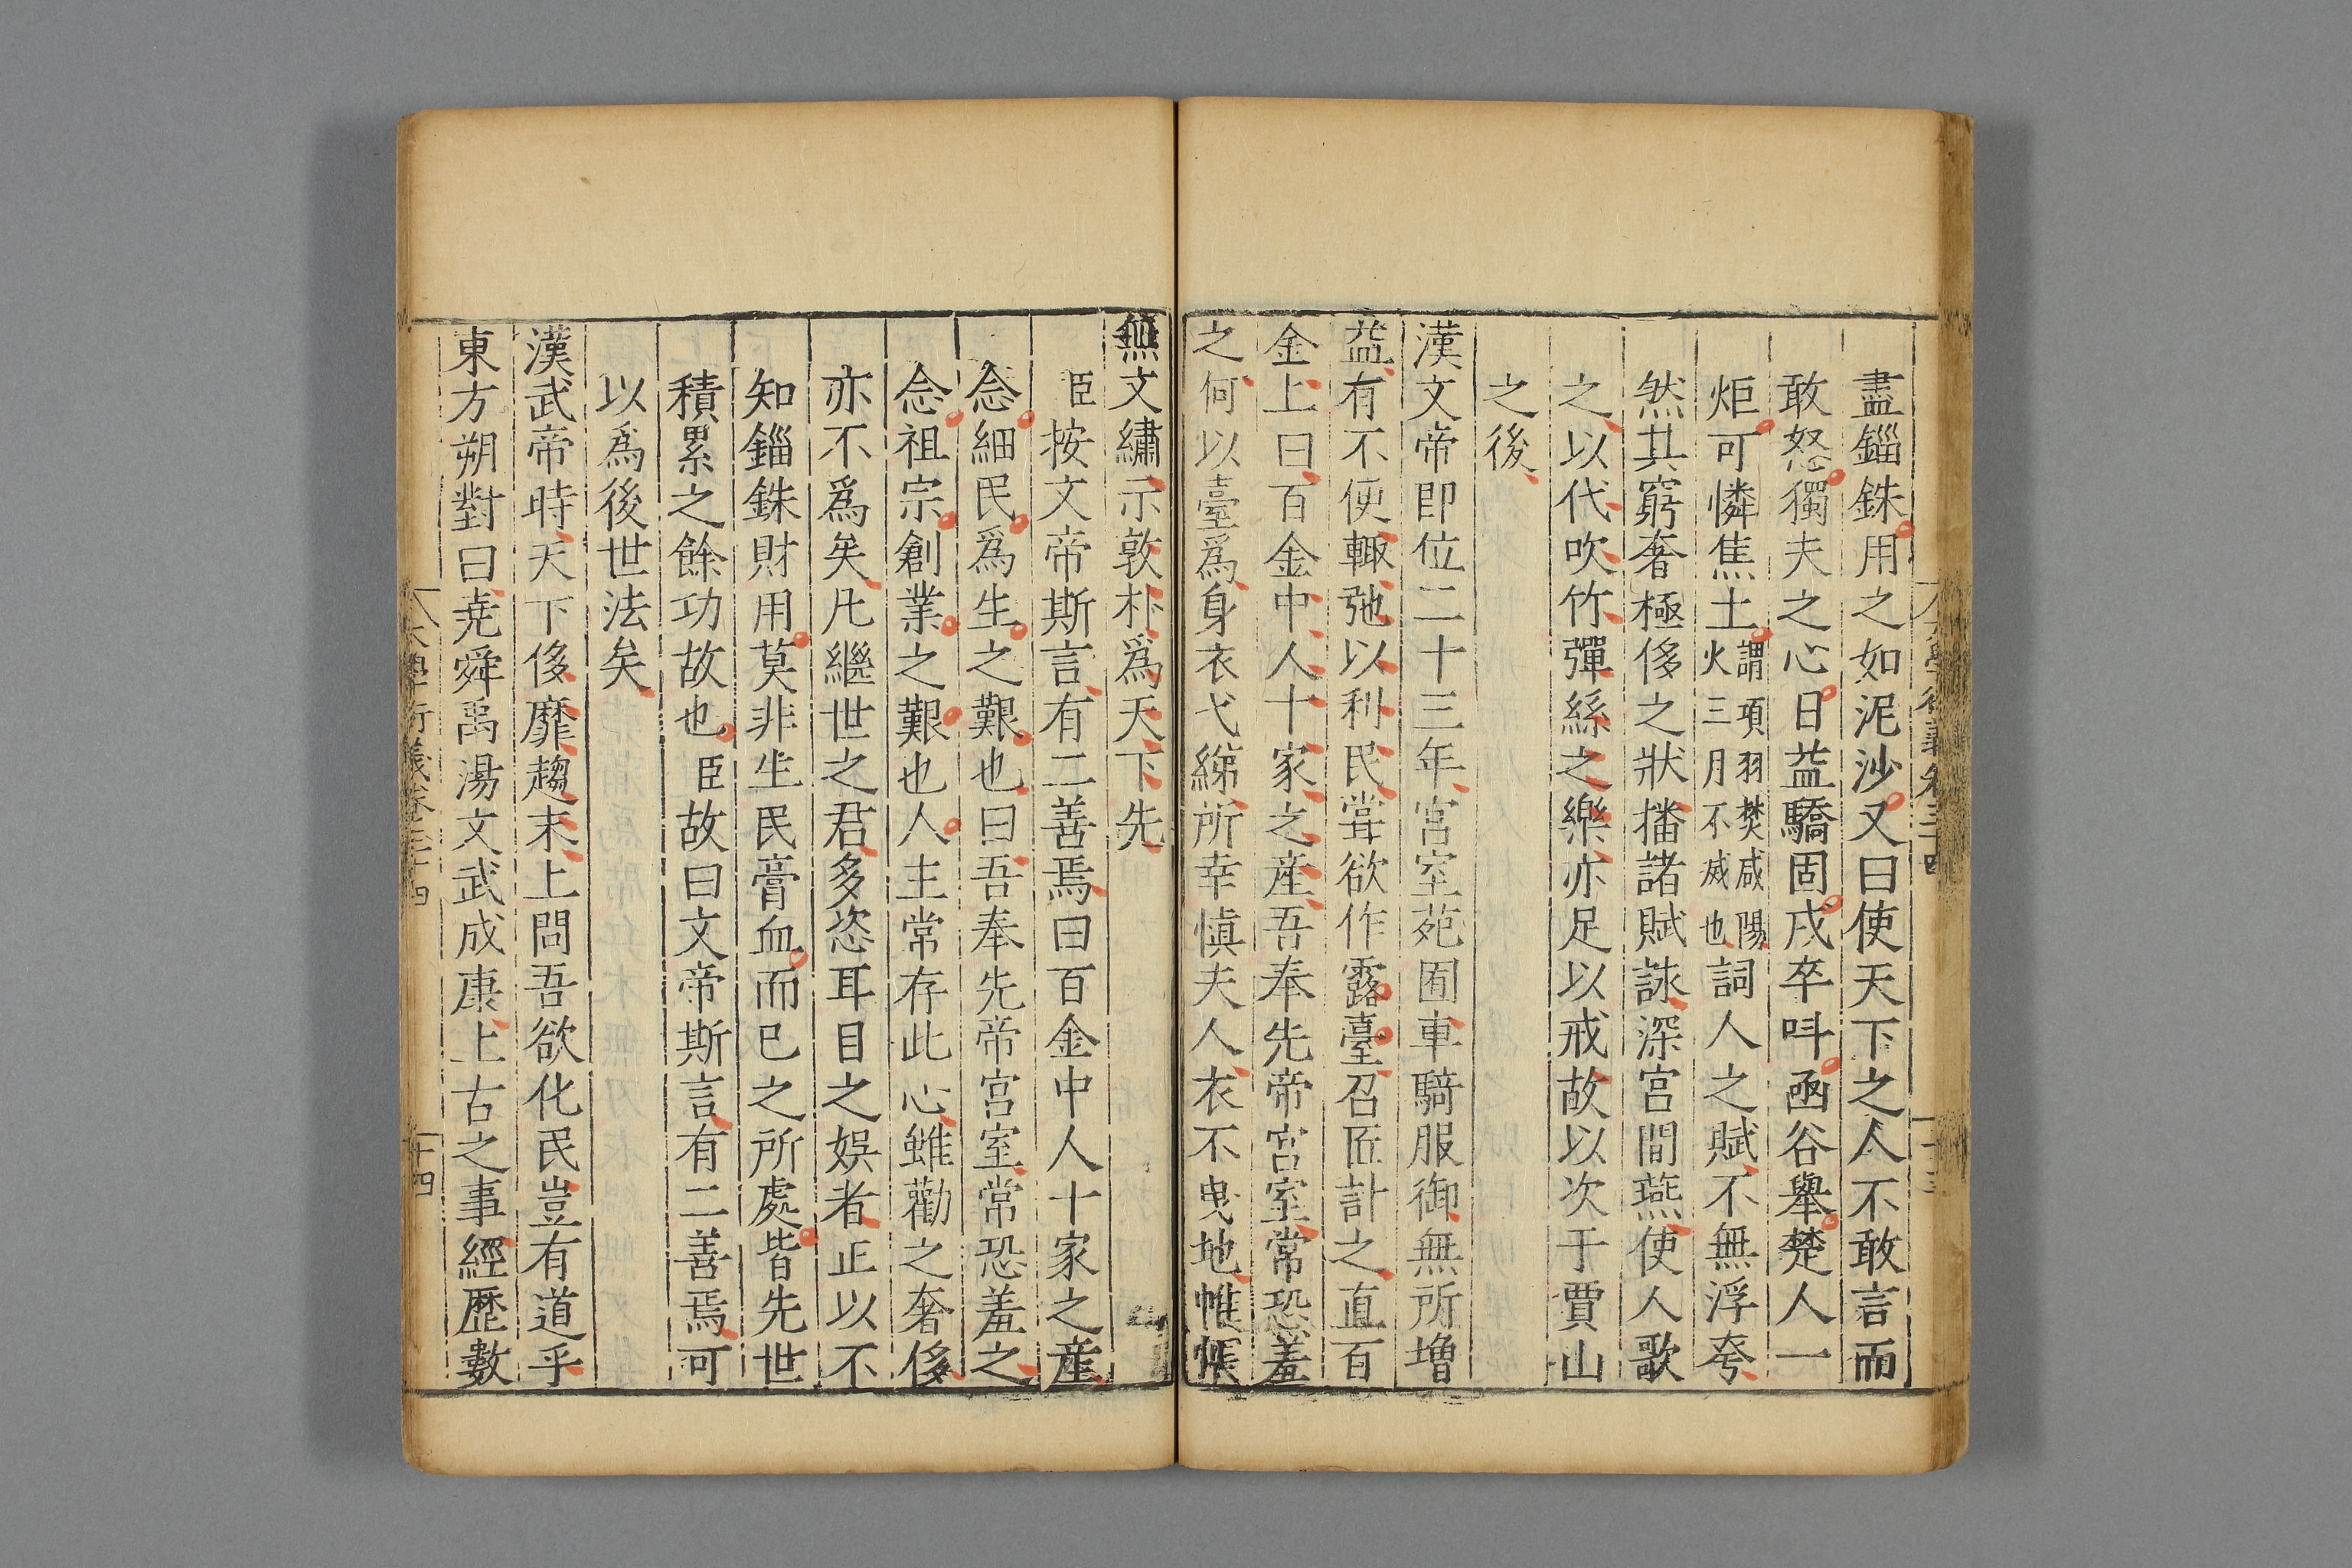 盡錙銖用之如泥沙又曰使天下之人不敢言而
敢怒獨夫之心日益驕固戍卒呌凾谷舉楚人一
炬可憐焦土謂項羽焚咸陽火三月不烕也詞人之賦不無浮夸
然其窮奢極侈之狀播諸賦詠深宮間燕使人歌
之以代吹竹彈絲之樂亦足以戒故以次于賈山
之後
漢文帝即位二十三年宮室苑囿車騎服御無所增
益有不便輙弛以利民甞欲作露臺召匠計之直百
金上曰百金中人十家之産吾奉先帝宮室常恐羞
之何以臺爲身衣弋綈所幸慎夫人衣不曳地帷帳
無文繡示敦朴爲天下先
臣按文帝斯言有二善焉曰百金中人十家之産
念細民爲生之艱也曰吾奉先帝宮室常恐羞之
念祖宗創業之艱也人主常存此心雖勸之奢侈
亦不爲矣凡繼世之君多恣耳目之娯者正以不
知錙銖財用莫非生民膏血而已之所處皆先世
積累之餘功故也臣故曰文帝斯言有二善焉可
以爲後世法矣
漢武帝時天下侈靡趨末上問吾欲化民豈有道乎
東方朔對曰堯舜禹湯文武成康上古之事經歷數
大學衍義卷三十四
十四